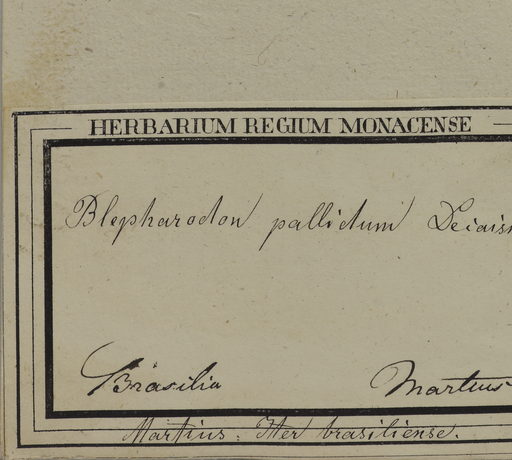 HERBARIUM REGIUM MONACENSE
Blepharodon pallidum Decaisn
Brasilia Martius
Martius. Iter brasiliense.